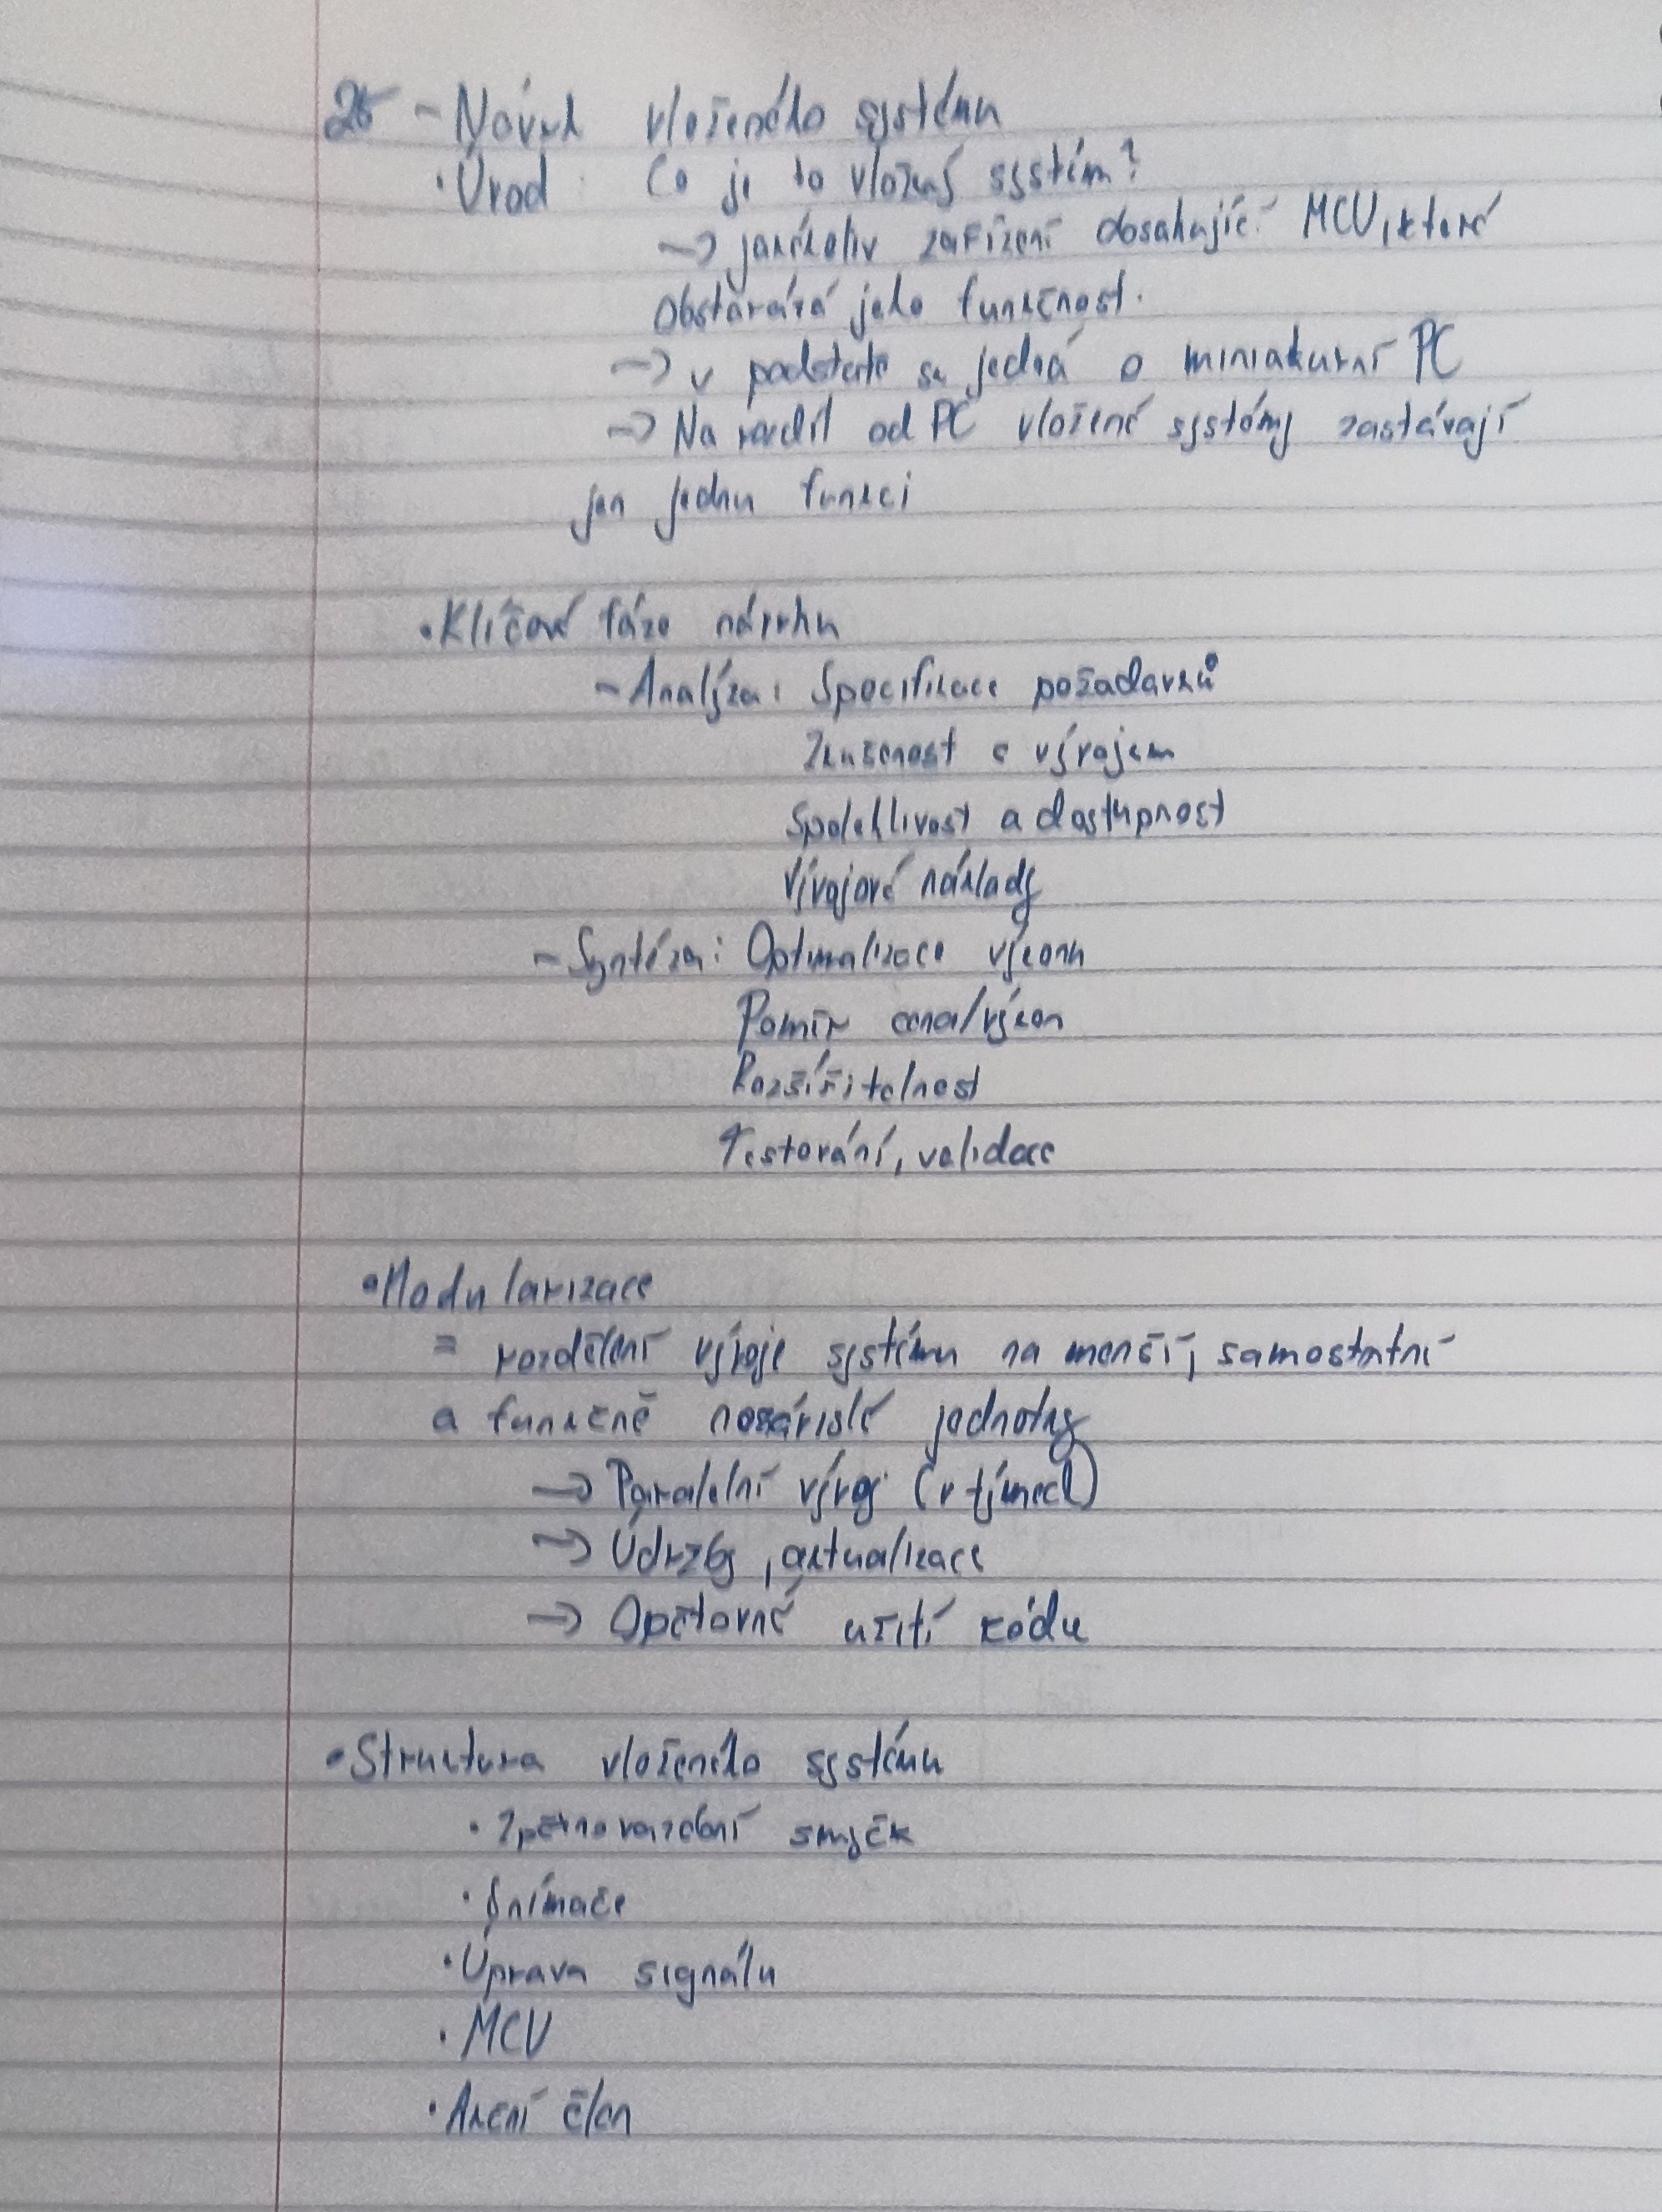 25 - Návrh vloženého systému
• Úvod : Co je to vložený systém?
→ jakékoliv zařízení obsahující MCU, které
obstarává jeho funkčnost.
→ v podstatě se jedná o miniaturní PC
→ Na rozdíl od PC vložené systémy zastávají
jen jednu funkci
• Klíčové fáze návrhu
- Analýza: Specifikace požadavků
Zkušenost s vývojem
Spolehlivost a dostupnost
Vývojové náklady
- Syntéza: Optimalizace výkonu
Poměr cena/výkon
Rozšiřitelnost
Testování, validace
• Modularizace
= rozdělení vývoje systému na menší, samostatní
a funkčně nezávislé jednotky
→ Paralelní vývoj (v týmech)
→ Údržby, aktualizace
→ Opětovné užití kódu
• Struktura vloženého systému
• Zpětnovazební smyčk
• Snímače
• Úprava signálu
• MCU
• Akční člen